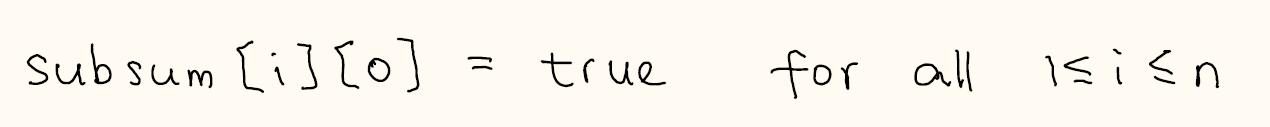 subsum[i][0] = true for all 1≤i≤n